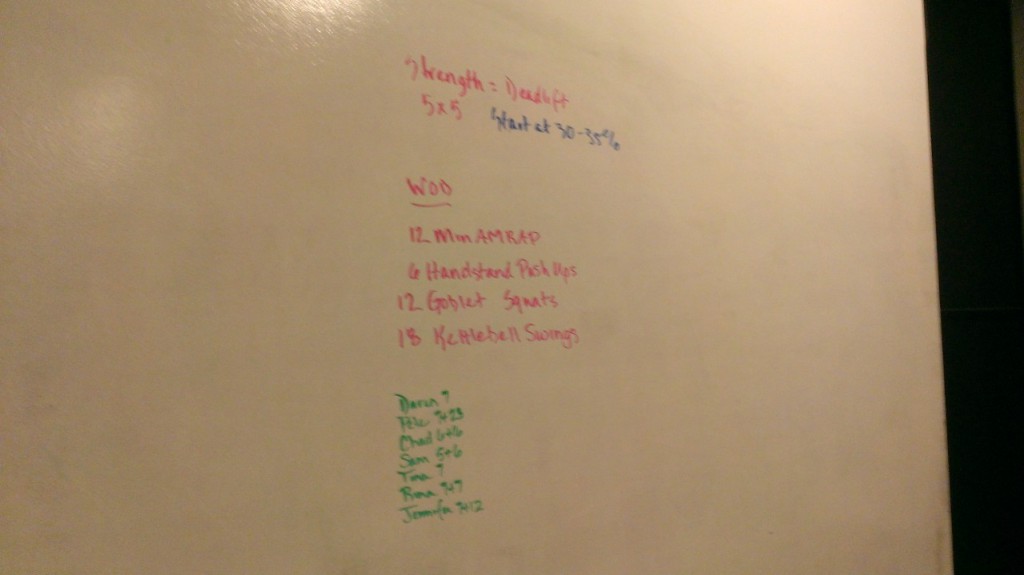 Strength = Deadlift
5x5 Start at 30-35%
WOD
12 Min AMRAP
6 Handstand Push Ups
12 Goblet Squats
18 Kettlebell Swings
Daren 7
7+23
Chad 6+6
Sam 5+6
Tina 7
7+7
Jennifer 7+12